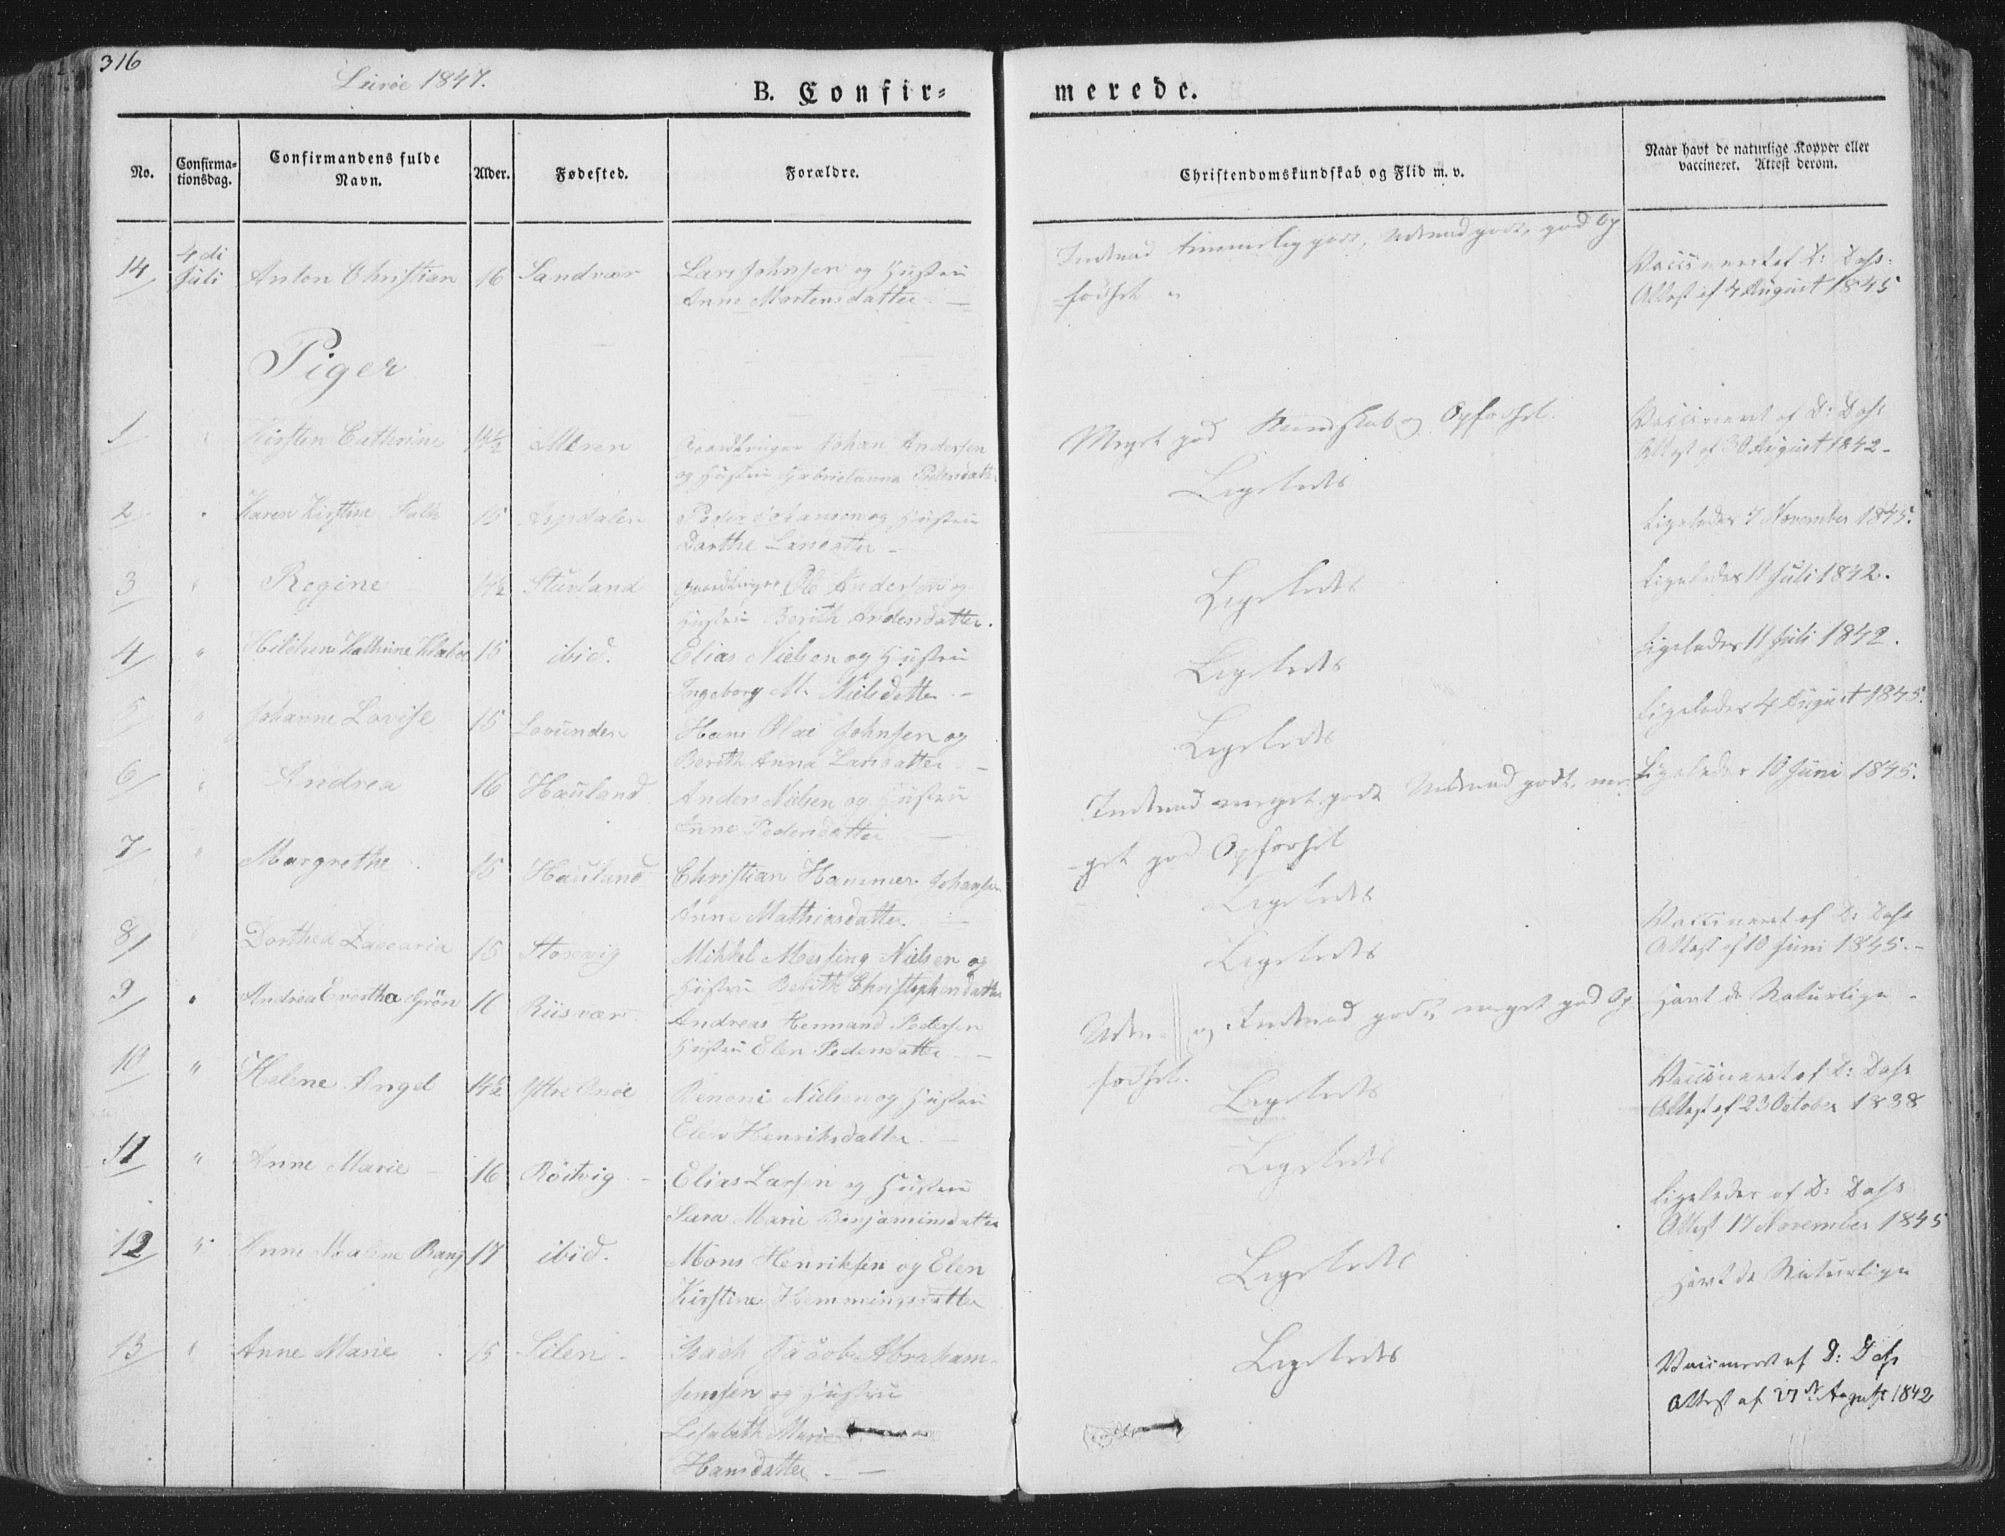 316
Luröe 1847.
B. Confir=
merede.
No.
Confirma-
tionsdag.
Confirmandens fulde
Navn.
Alder.
Fødested.
Forældre.
Christendomskundskab og Flid m. v.
Naar havt de naturlige Kopper eller
vaccineret. Attest derom.
14 4di Juli Anton Christian 16 Sandvær Lars Johnsen og Hustru
Anne Mortensdatter
Indenad temmelig godt, Udenad godt, god Op
førsel
Vaccineret af D: Dahs
Attest af 4 August 1845
Piger
1 Kirsten Cathrine 14½ Gaardbruger Johan Andersen
og Hustru Gabrielanna Pedersdatter
Meget god Kundskab og Opførsel.
Vaccineret af D: Dahs
Attest af 30 August 1842
2 Karen Kirstine Falk 15 Peder Johansen og Hustru
Dorthe Larsdatter
Ligeledes
Ligeledes 7 November 1845.
3 Regine 14½ Stuvland Gaardbruger Ole Andersen og
Hustru Berith Andersdatter.
Ligeledes
Ligeledes 11 Juli 1842.
4 15 ibid. Elias Nielsen og Hustru
Ingeborg M. Nielsdatter
Ligeledes
Ligeledes 11 Juli 1842.
5 Johanne Lovise 15 Lovunden Hans Olai Johnsen og
Berith Anna Larsdatter
Ligeledes
Ligeledes 4 August 1845.
6 Andrea 16 Hauland Anders Nielsen og Hustru
Anne Pedersdatter
Indenad meget godt Udenad godt, me-
get god Opførsel
Ligeledes 10 Juni 1845.
7 Margrethe 15 Hauland Christian Hammer Johansen
Anne Mathiasdatter
Ligeledes
8 Dorthea Zacaria 15 Storvig Mikkel Mesling Nielsen og
Hustru Berith Christophersdatter
Ligeledes
Vaccineret af D: Dahs
Attest af 10 Juni 1845.
9 Andrea Evertha Grön 16 Riisvær Andreas Hemmand Pedersen
Hustru Elen Pedersdatter
Uden- og Indenad godt, meget god Op-
førsel.
Havt de Naturlige
10 Helene Angel 14½ Benoni Nielsen og Hustru
Elen Henriksdatter
Ligeledes
Vaccineret af D: Dahs
Attest af 23 October 1838
11 Anne Marie 16 Röitvig Elias Larsen og Hustru
Sara Marie Benjaminsdatter
Ligeledes
Ligeledes af D: Dahs
Attest 17 November 1845
12 Anne Malene Bang 17 ibid. Mons Henriksen og Elen
Kirstine Hemmingsdatter
Ligeledes
Havt de Naturlige
13 Anne Marie 15 Selen Isach Jacob Abraham-
sensen og Hustru
Lisabeth Marie
Hansdatter
Ligeledes
Vaccineret af D: Dahs
Attest af 27de August 1842